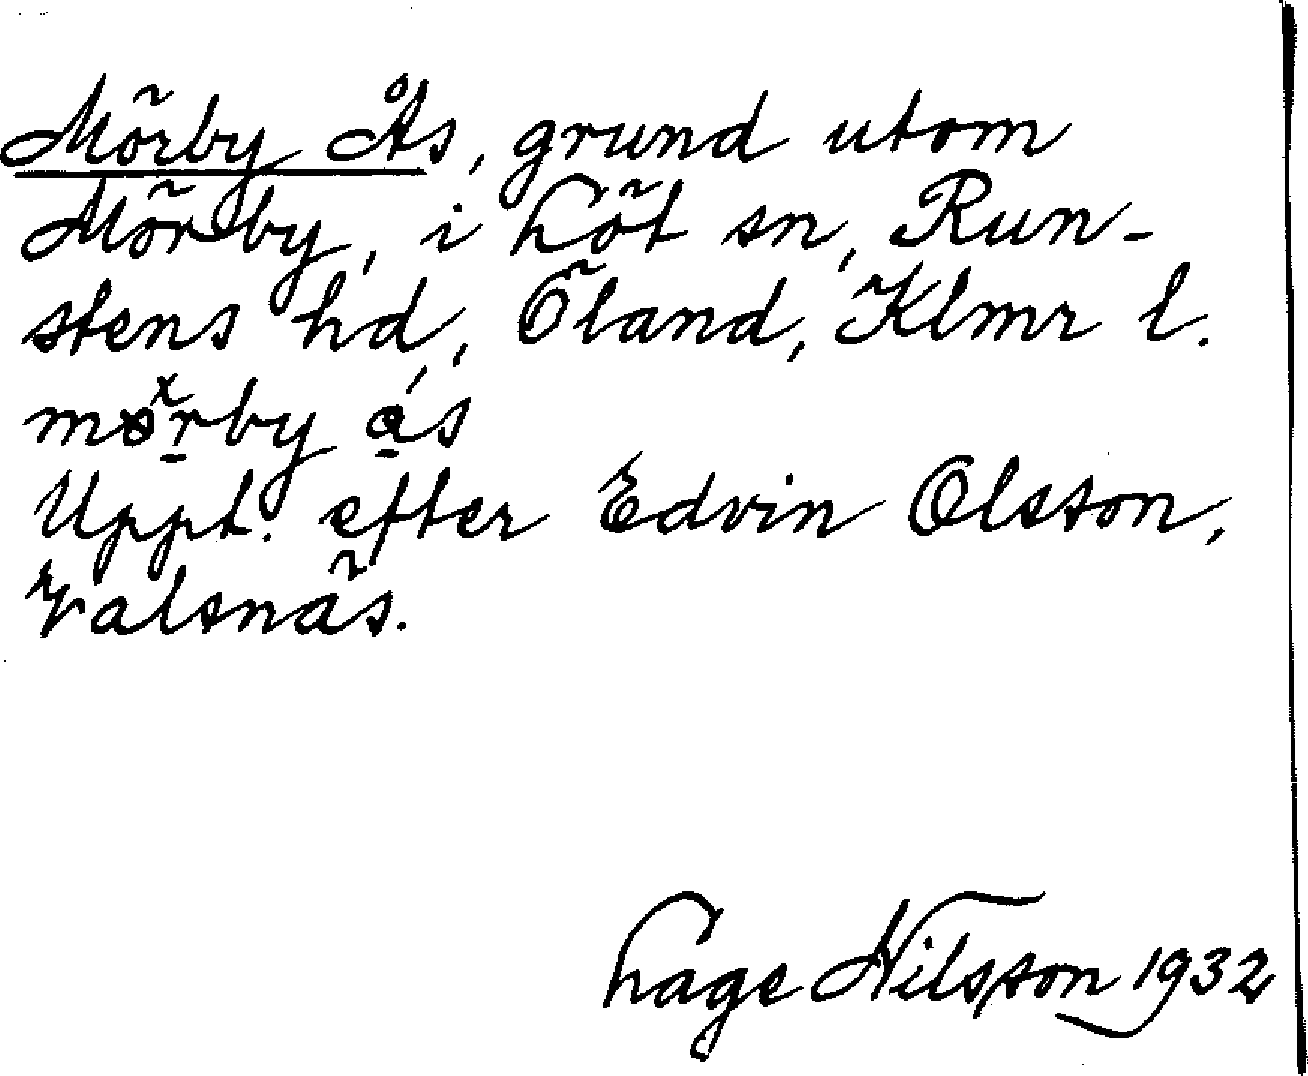 Mörby Ås, grund utom
Mörby, i Löt sn, Run-
stens hd, Öland, Klmr l.
mörby ås
Uppt. efter Edvin Olsson,
Valsnäs.
Lage Nilsson 1932